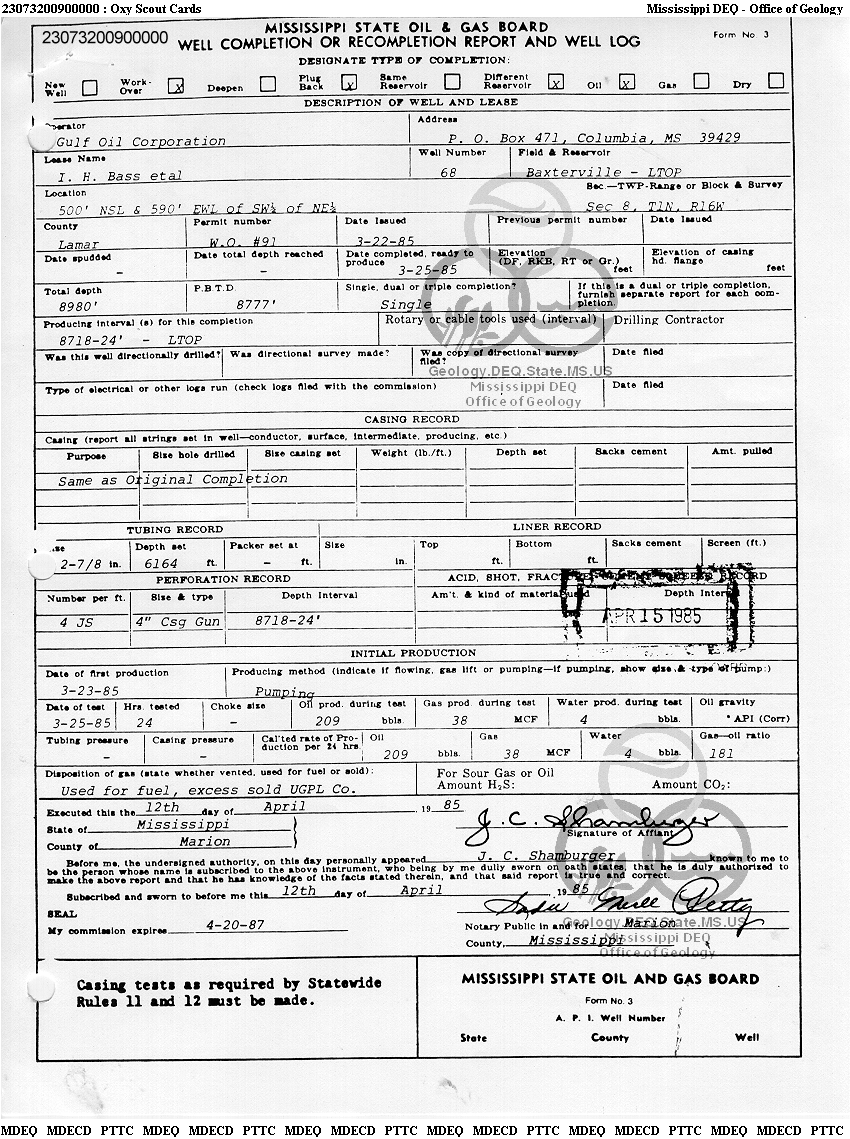 23073200900000 : Oxy Scout Cards Mississippi DEQ - Office of Geology
MISSISSIPPI STATE OIL & GAS BOARD
23073200900000 WELL COMPLETION OR RECOMPLETION REPORT AND WELL LOG Form No. 3
DESIGNATE TYPE OF COMPLETION:
New Well Work-Over X Deepen Plug Back X Same Reservoir Different Reservoir X Oil X Gas Dry
DESCRIPTION OF WELL AND LEASE
Operator Address
Gulf Oil Corporation P. O. Box 471, Columbia, MS 39429
Lease Name Well Number Field & Reservoir
I. H. Bass etal 68 Baxterville - LTOP
Location Sec.—TWP-Range or Block & Survey
500' NSL & 590' EWL of SW¼ of NE¼ Sec 8, T1N, R16W
County Permit number Date Issued Previous permit number Date Issued
Lamar W.O. #91 3-22-85
Date spudded Date total depth reached Date completed, ready to produce Elevation (DF, RKB, RT or Gr.) Elevation of casing hd. flange
- - 3-25-85 feet feet
Total depth P.B.T.D. Single, dual or triple completion? If this is a dual or triple completion, furnish separate report for each completion.
8980' 8777' Single
Producing interval (s) for this completion Rotary or cable tools used (interval) Drilling Contractor
8718-24' - LTOP
Was this well directionally drilled? Was directional survey made? Was copy of directional survey filed? Date filed
Geology.DEQ.State.MS.US
Type of electrical or other logs run (check logs filed with the commission) Mississippi DEQ Date filed
Office of Geology
CASING RECORD
Casing (report all strings set in well—conductor, surface, intermediate, producing, etc.)
Purpose Size hole drilled Size casing set Weight (lb./ft.) Depth set Sacks cement Amt. pulled
Same as Original Completion
TUBING RECORD LINER RECORD
Depth set Packer set at Size Top Bottom Sacks cement Screen (ft.)
2-7/8 in. 6164 ft. - ft. in. ft. ft.
PERFORATION RECORD ACID, SHOT, FRACTURE, CEMENT SQUEEZE RECORD
Number per ft. Size & type Depth Interval Am't. & kind of material used Depth Interval
4 JS 4" Csg Gun 8718-24' APR 15 1985
INITIAL PRODUCTION
Date of first production Producing method (indicate if flowing, gas lift or pumping—if pumping, show size & type of pump:)
3-23-85 Pumping
Date of test Hrs. tested Choke size Oil prod. during test Gas prod. during test Water prod. during test Oil gravity
3-25-85 24 - 209 bbls. 38 MCF 4 bbls. ° API (Corr)
Tubing pressure Casing pressure Cal'ted rate of Production per 24 hrs. Oil Gas Water Gas—oil ratio
- - 209 bbls. 38 MCF 4 bbls. 181
Disposition of gas (state whether vented, used for fuel or sold): For Sour Gas or Oil
Used for fuel, excess sold UGPL Co. Amount H2S: Amount CO2:
Executed this the 12th day of April 19 85
State of Mississippi J. C. Shamburger
Signature of Affiant
County of Marion
Before me, the undersigned authority, on this day personally appeared J. C. Shamburger known to me to
be the person whose name is subscribed to the above instrument, who being by me duly sworn on oath states, that he is duly authorized to
make the above report and that he has knowledge of the facts stated therein, and that said report is true and correct.
Subscribed and sworn to before me this 12th day of April 1985
SEAL Petty
My commission expires 4-20-87 Notary Public in and for Marion
Geology.DEQ.State.MS.US
Mississippi DEQ
County, Mississippi
Office of Geology
Casing tests as required by Statewide
Rules 11 and 12 must be made.
MISSISSIPPI STATE OIL AND GAS BOARD
Form No. 3
A. P. I. Well Number
State County Well
MDEQ MDECD PTTC MDEQ MDECD PTTC MDEQ MDECD PTTC MDEQ MDECD PTTC MDEQ MDECD PTTC MDEQ MDECD PTTC